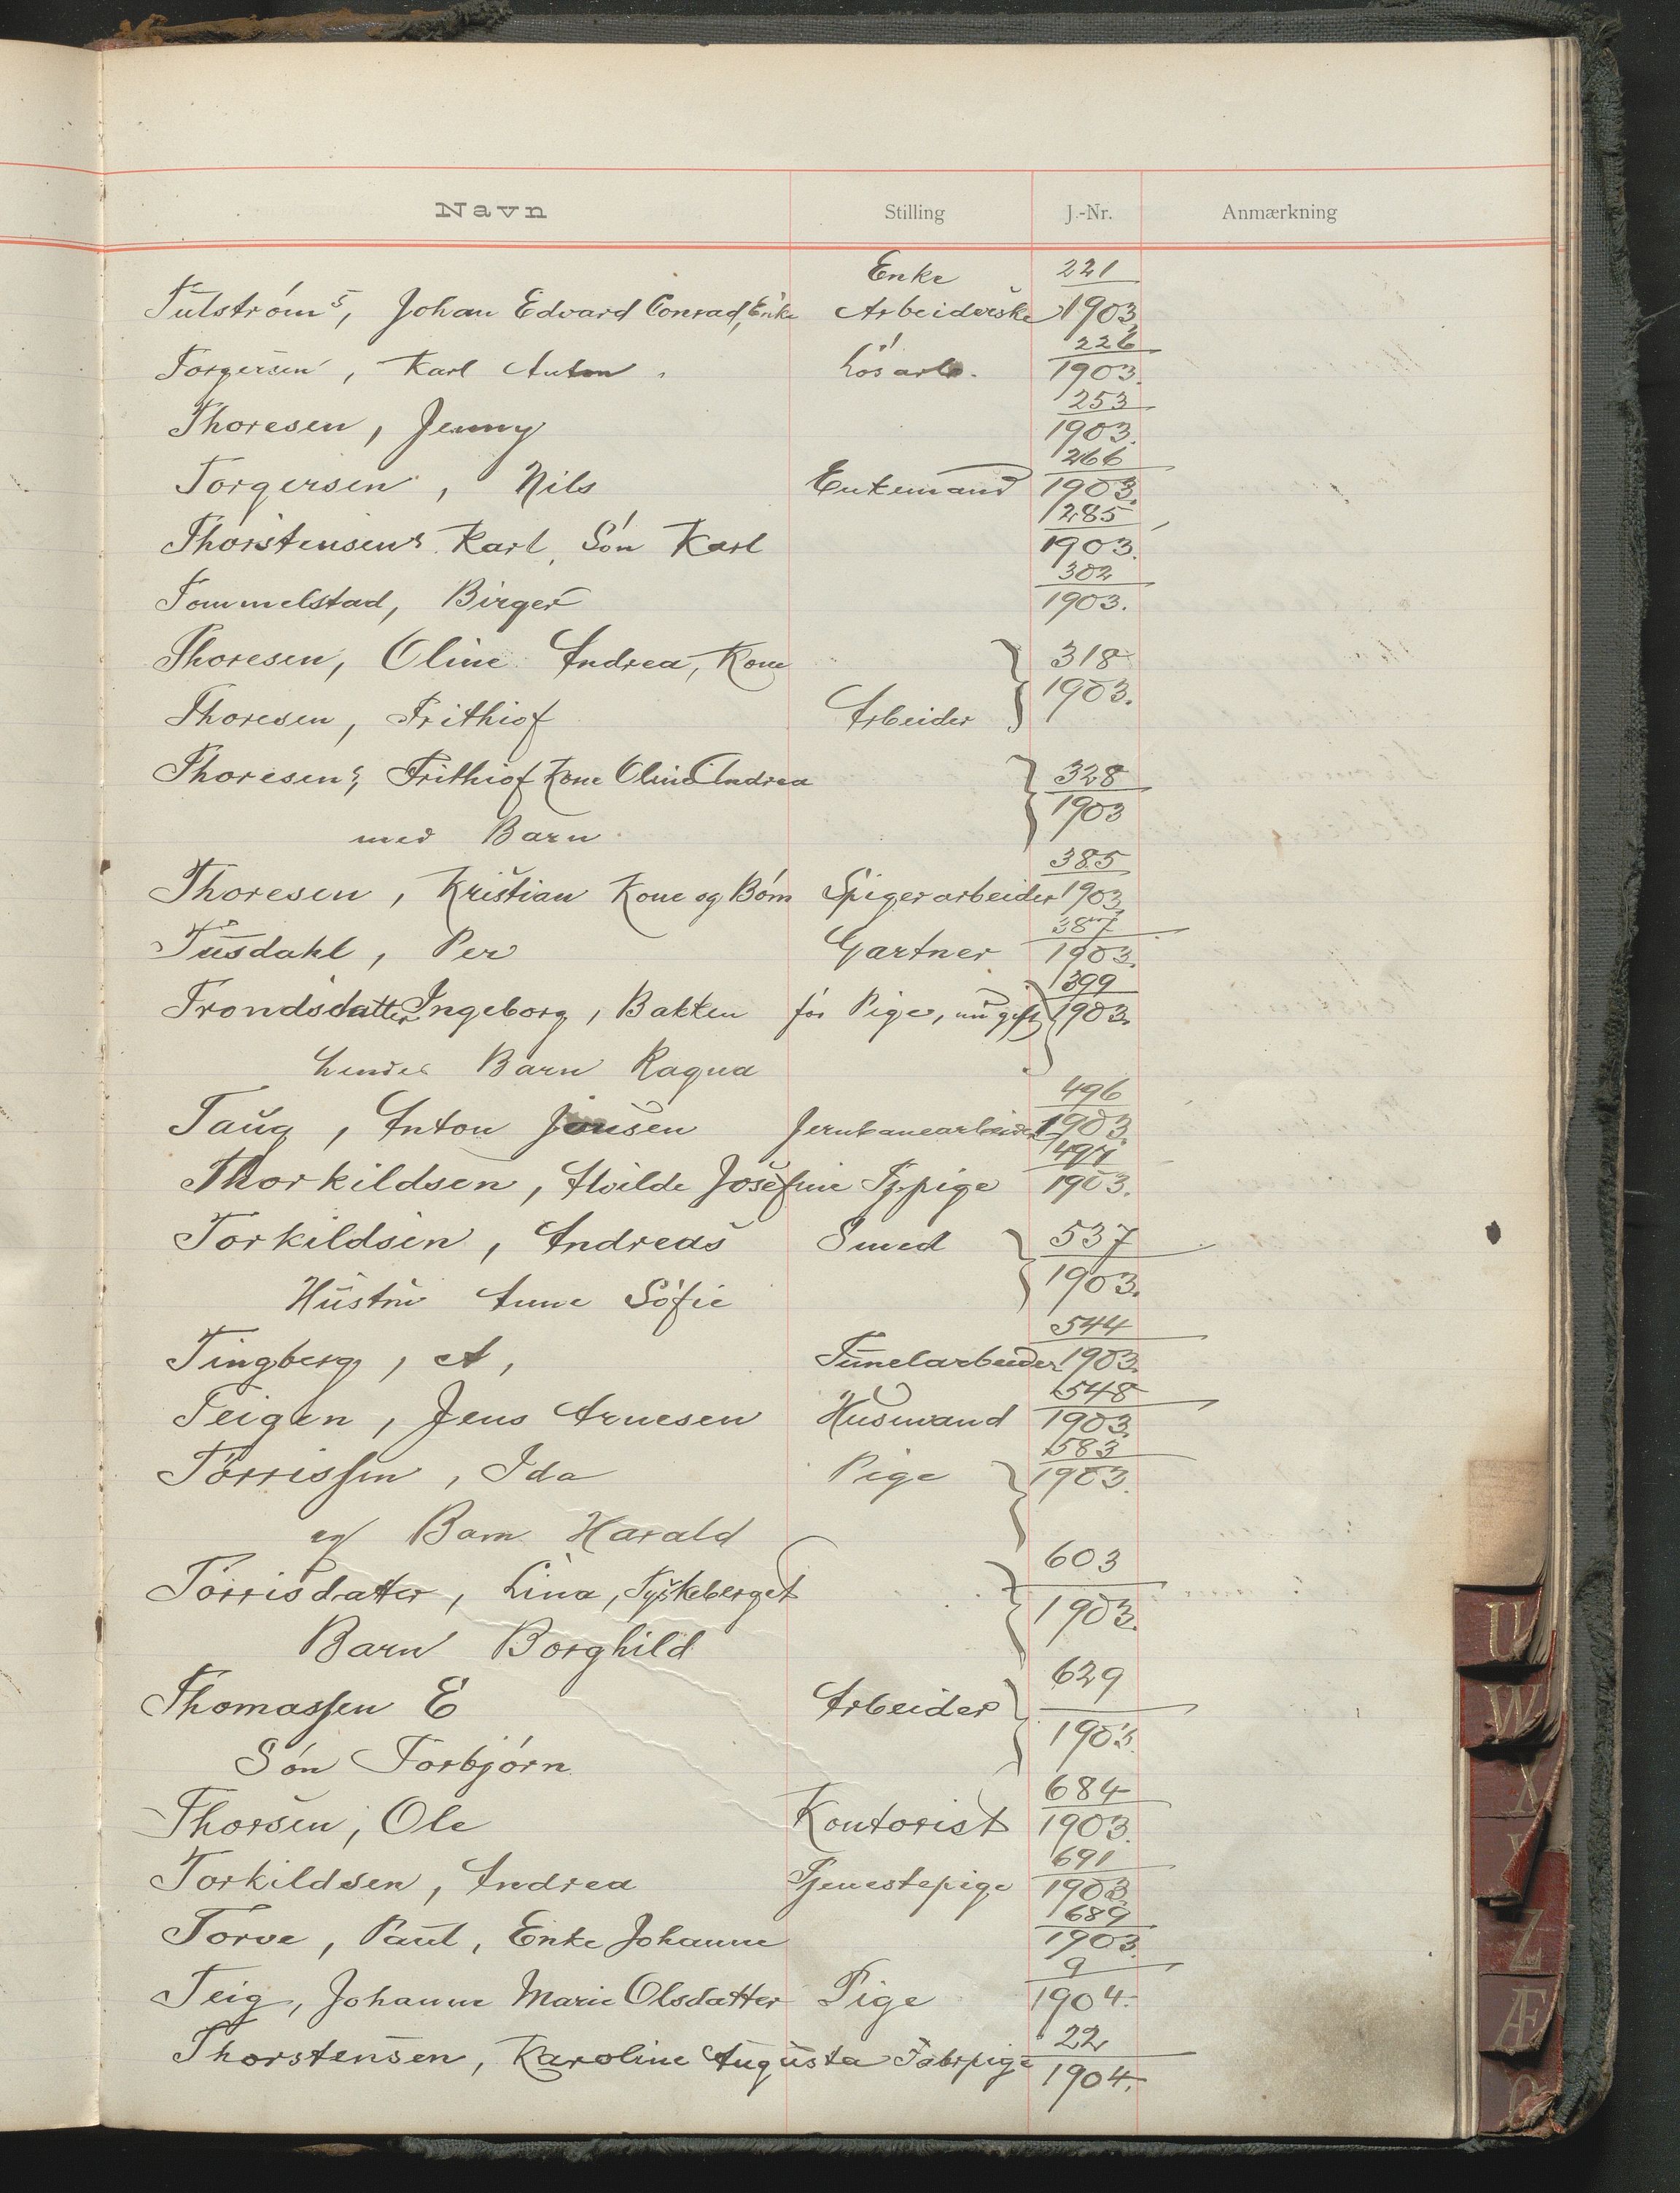 Navn Stilling J.-Nr. Anmærkning
Enke 221
Tulstrøms, Johan Edvard Conrad, Enke Arbeiderske 1903
226
Torgersen, Karl Anton Løsarb. 1903.
253
Thoresen, Jenny 1903.
266
Torgersen, Nils Enkemand 1903.
285
Thorstensens Karl, Søn Karl 1903.
302
Tommelstad, Birger 1903.
Thoresen, Oline Andrea, Kone 318
1903.
Thoresen, Frithiof Arbeider
Thoresens, Frithiof Kone Oline Andrea 328
1903
med Barn
385
Thoresen, Kristian Kone og Børn Spigerarbeider 1903
387
Tusdahl, Per Gartner 1903.
399
Trondsdatter Ingeborg, Bakken før Pige, nu gift 1903.
hendes Barn Ragna
496
Taug, Anton Jensen Jernbanearbeider 1903.
497
Thorkildsen, Alvilde Josefine Tj.pige 1903.
Torkildsen, Andreas Smed 537
1903.
Hustru Anne Sofie
544
Tingberg, A, Tunelarbeider 1903.
548
Teigen, Jens Arnesen Husmand 1903.
583
Torrissen, Ida Pige 1903.
og Barn Harald
603
Torrisdatter, Lina, Tyskeberget
1903.
Barn Borghild
629
Thomassen E Arbeider
1903.
Søn Torbjørn
684
Thorsen, Ole Kontorist 1903.
691
Torkildsen, Andrea Tjenestepige 1903
689
Torve, Paul, Enke Johanne 1903.
9
Teig, Johanne Marie Olsdatter Pige 1904.
22
Thorstensen, Karoline Augusta Fabrpige
1904.
U
W
X
Z
Æ